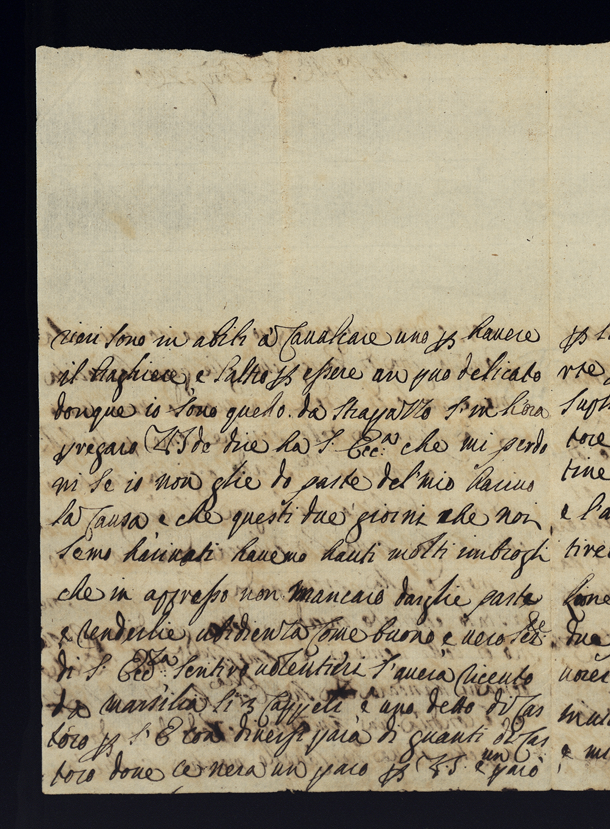 rieri sono in abili à Cavalcare uno p havere
il e l'altro p essere un puo delicato
donque io sono quelo da strapazzo in hora
pregaro VS de dire ha S. Ecc.a che mi perdo
ni se io non glie do parte del mio
la Causa e che questi due giorni che non
semo havemo hauti molti imbrogli
che in appresso non mancarò darglie parte
e renderlie ubidienza Come buono e vero Ser.re
di S. Ecc.za sentirò volentieri s'averà ricevto
da Marsilia li 3 Cappeli e uno detto di Cas
toro p S. E con diversi para di guanti di Cas
toro dove ce nera un paro p VS. e un paro
p
rte
supli
tore
tine
e l'a
tire
due
e mi